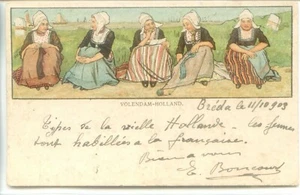 VOLENDAM-HOLLAND.
Bréda le 11/10 903
Types de la vieille Hollande. les femmes
sont habillées à la française.
Bien à vous
E.